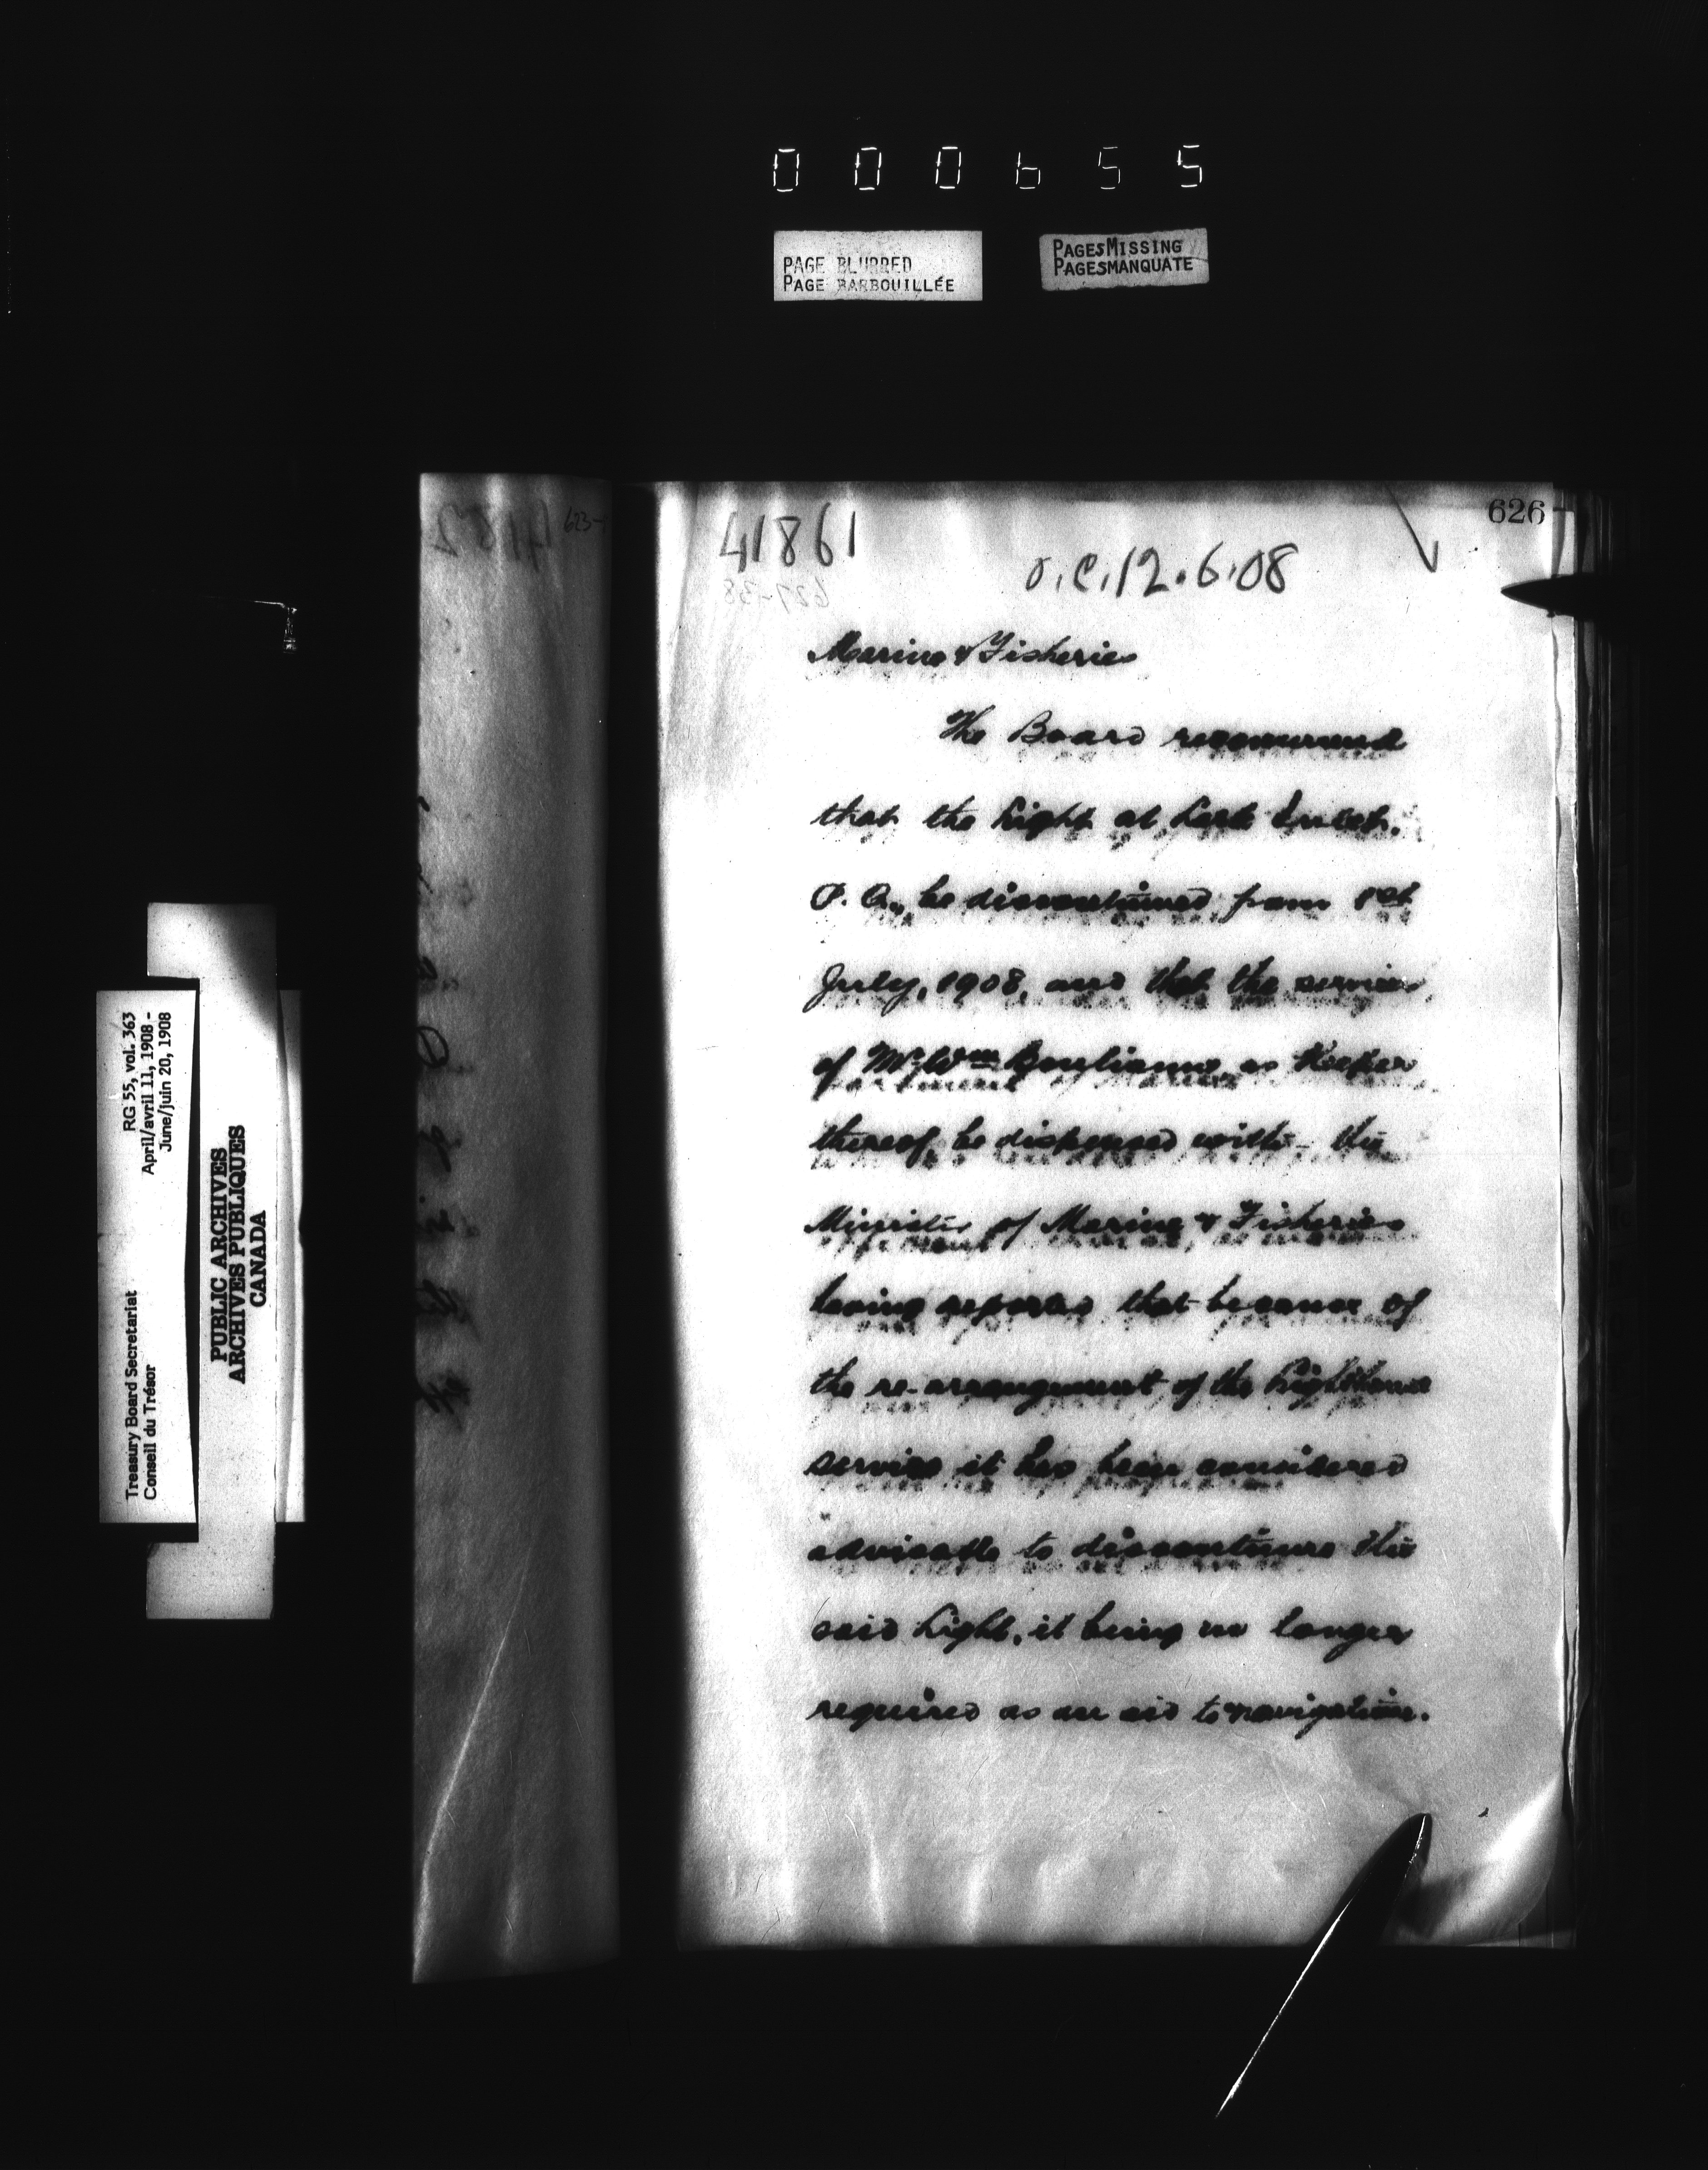 000655
PAGE BLURRED
PAGE BARBOUILLÉE
PAGESMISSING
PAGESMANQUATE
RG 55, vol. 363
April/avril 11, 1908 -
June/juin 20, 1908
Treasury Board Secretariat
Conseil du Trésor
PUBLIC ARCHIVES
ARCHIVES PUBLIQUES
CANADA
626
41861
O.C. 12.6.08
Marine & Fisheries
The Board recommend
that the Light at
P. Q., be discontinued from 1st
July, 1908, and that the services
of Mr. Wm. Boulianne as Keeper
thereof be dispensed with - the
Minister of Marine & Fisheries
having reported that because of
the re-arrangement of the Lighthouse
service it has been considered
advisable to discontinue the
said Light, it being no longer
required as an aid to navigation.